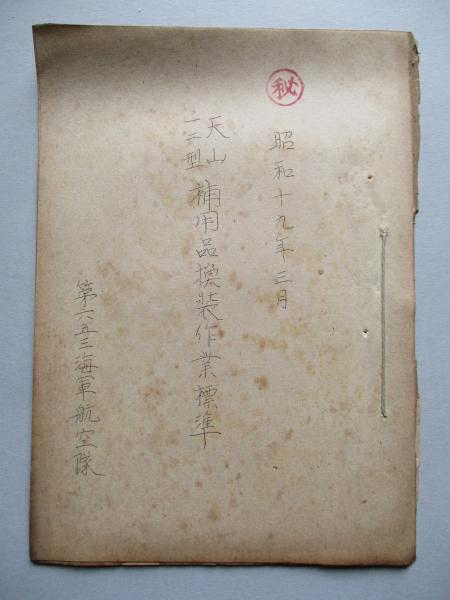 ㊙
昭和十九年三月
天山
一二型
補用品換装作業標準
第六五三海軍航空隊